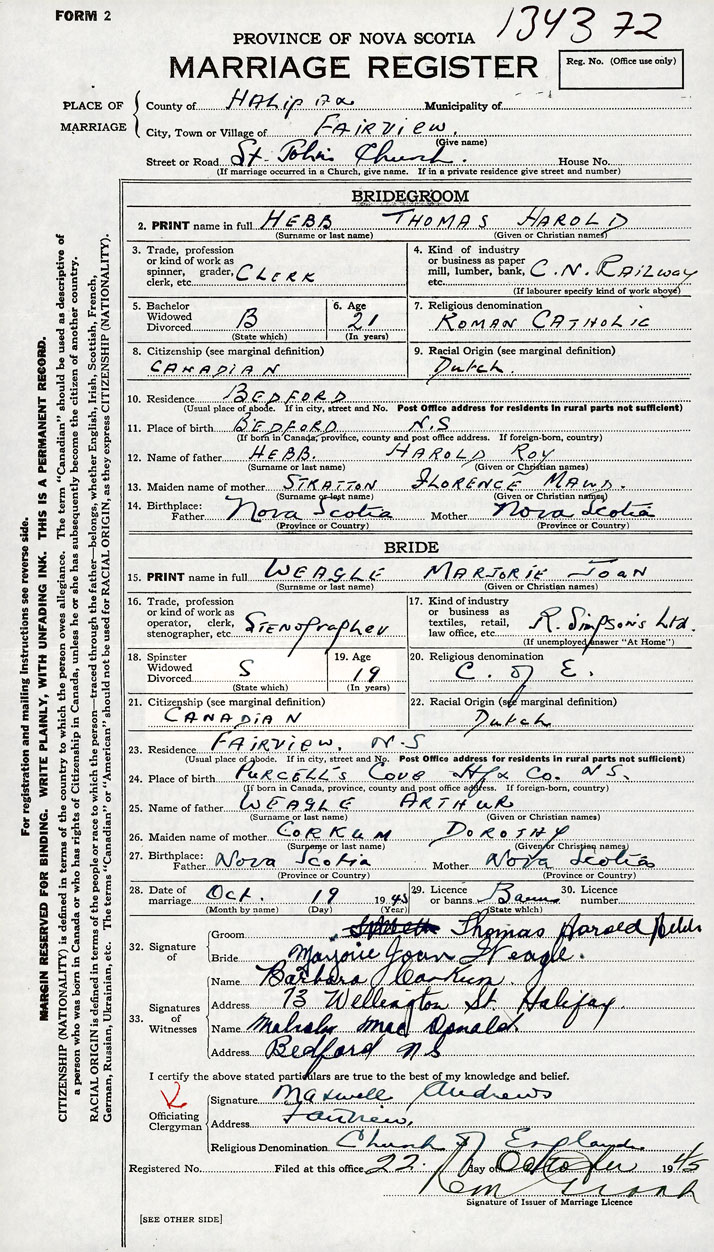 FORM 2
134372
PROVINCE OF NOVA SCOTIA
MARRIAGE REGISTER
Reg. No. (Office use only)
PLACE OF MARRIAGE
County of Halifax Municipality of
City, Town or Village of FAIRVIEW.
(Give name)
Street or Road St. John's Church. House No.
(If marriage occurred in a Church, give name. If in a private residence give street and number)
BRIDEGROOM
2. PRINT name in full HEBB THOMAS HAROLD
(Surname or last name) (Given or Christian names)
3. Trade, profession or kind of work as spinner, grader, clerk, etc. CLERK
4. Kind of industry or business as paper mill, lumber, bank, etc. C.N. RAILWAY
(If labourer specify kind of work above)
5. Bachelor Widowed Divorced B
(State which)
6. Age 21
(In years)
7. Religious denomination
ROMAN CATHOLIC
8. Citizenship (see marginal definition)
CANADIAN
9. Racial Origin (see marginal definition)
Dutch.
10. Residence BEDFORD
(Usual place of abode. If in city, street and No. Post Office address for residents in rural parts not sufficient)
11. Place of birth BEDFORD N.S
(If born in Canada, province, county and post office address. If foreign-born, country)
12. Name of father HEBB. HAROLD ROY
(Surname or last name) (Given or Christian names)
13. Maiden name of mother STRATTON FLORENCE MAUD.
(Surname or last name) (Given or Christian names)
14. Birthplace: Father Nova Scotia Mother Nova Scotia
(Province or Country) (Province or Country)
BRIDE
15. PRINT name in full WEAGLE MARJORIE JOAN
(Surname or last name) (Given or Christian names)
16. Trade, profession or kind of work as operator, clerk, stenographer, etc. STENOgrapher
17. Kind of industry or business as textiles, retail, law office, etc. R. Simpson's Ltd.
(If unemployed answer "At Home")
18. Spinster Widowed Divorced S
(State which)
19. Age 19
(In years)
20. Religious denomination
C. of E.
21. Citizenship (see marginal definition)
CANADIAN
22. Racial Origin (see marginal definition)
Dutch
23. Residence FAIRVIEW, N.S
(Usual place of abode. If in city, street and No. Post Office address for residents in rural parts not sufficient)
24. Place of birth PURCELL'S COVE Hfx Co. N.S.
(If born in Canada, province, county and post office address. If foreign-born, country)
25. Name of father WEAGLE ARTHUR
(Surname or last name) (Given or Christian names)
26. Maiden name of mother CORKUM DOROTHY
(Surname or last name) (Given or Christian names)
27. Birthplace: Father Nova Scotia Mother Nova Scotia
(Province or Country) (Province or Country)
28. Date of marriage Oct. 19 1945
(Month by name) (Day) (Year)
29. Licence or banns Banns
(State which)
30. Licence number
32. Signature of
Groom Thomas Harold Hebb
Bride Marjorie Joan Weagle.
33. Signatures of Witnesses
Name Barbara Corkum.
Address 73 Wellington St. Halifax.
Name Malcolm MacDonald.
Address Bedford NS
I certify the above stated particulars are true to the best of my knowledge and belief.
Officiating Clergyman
Signature Maxwell Andrews
Address Fairview,
Religious Denomination Church of England
Registered No. Filed at this office 22. day of October 1945
Signature of Issuer of Marriage Licence
[SEE OTHER SIDE]
For registration and mailing instructions see reverse side.
MARGIN RESERVED FOR BINDING. WRITE PLAINLY, WITH UNFADING INK. THIS IS A PERMANENT RECORD.
CITIZENSHIP (NATIONALITY) is defined in terms of the country to which the person owes allegiance. The term "Canadian" should be used as descriptive of
a person who was born in Canada or who has rights of Citizenship in Canada, unless he or she has subsequently become the citizen of another country.
RACIAL ORIGIN is defined in terms of the people or race to which the person—traced through the father—belongs, whether English, Irish, Scottish, French,
German, Russian, Ukrainian, etc. The terms "Canadian" or "American" should not be used for RACIAL ORIGIN, as they express CITIZENSHIP (NATIONALITY).